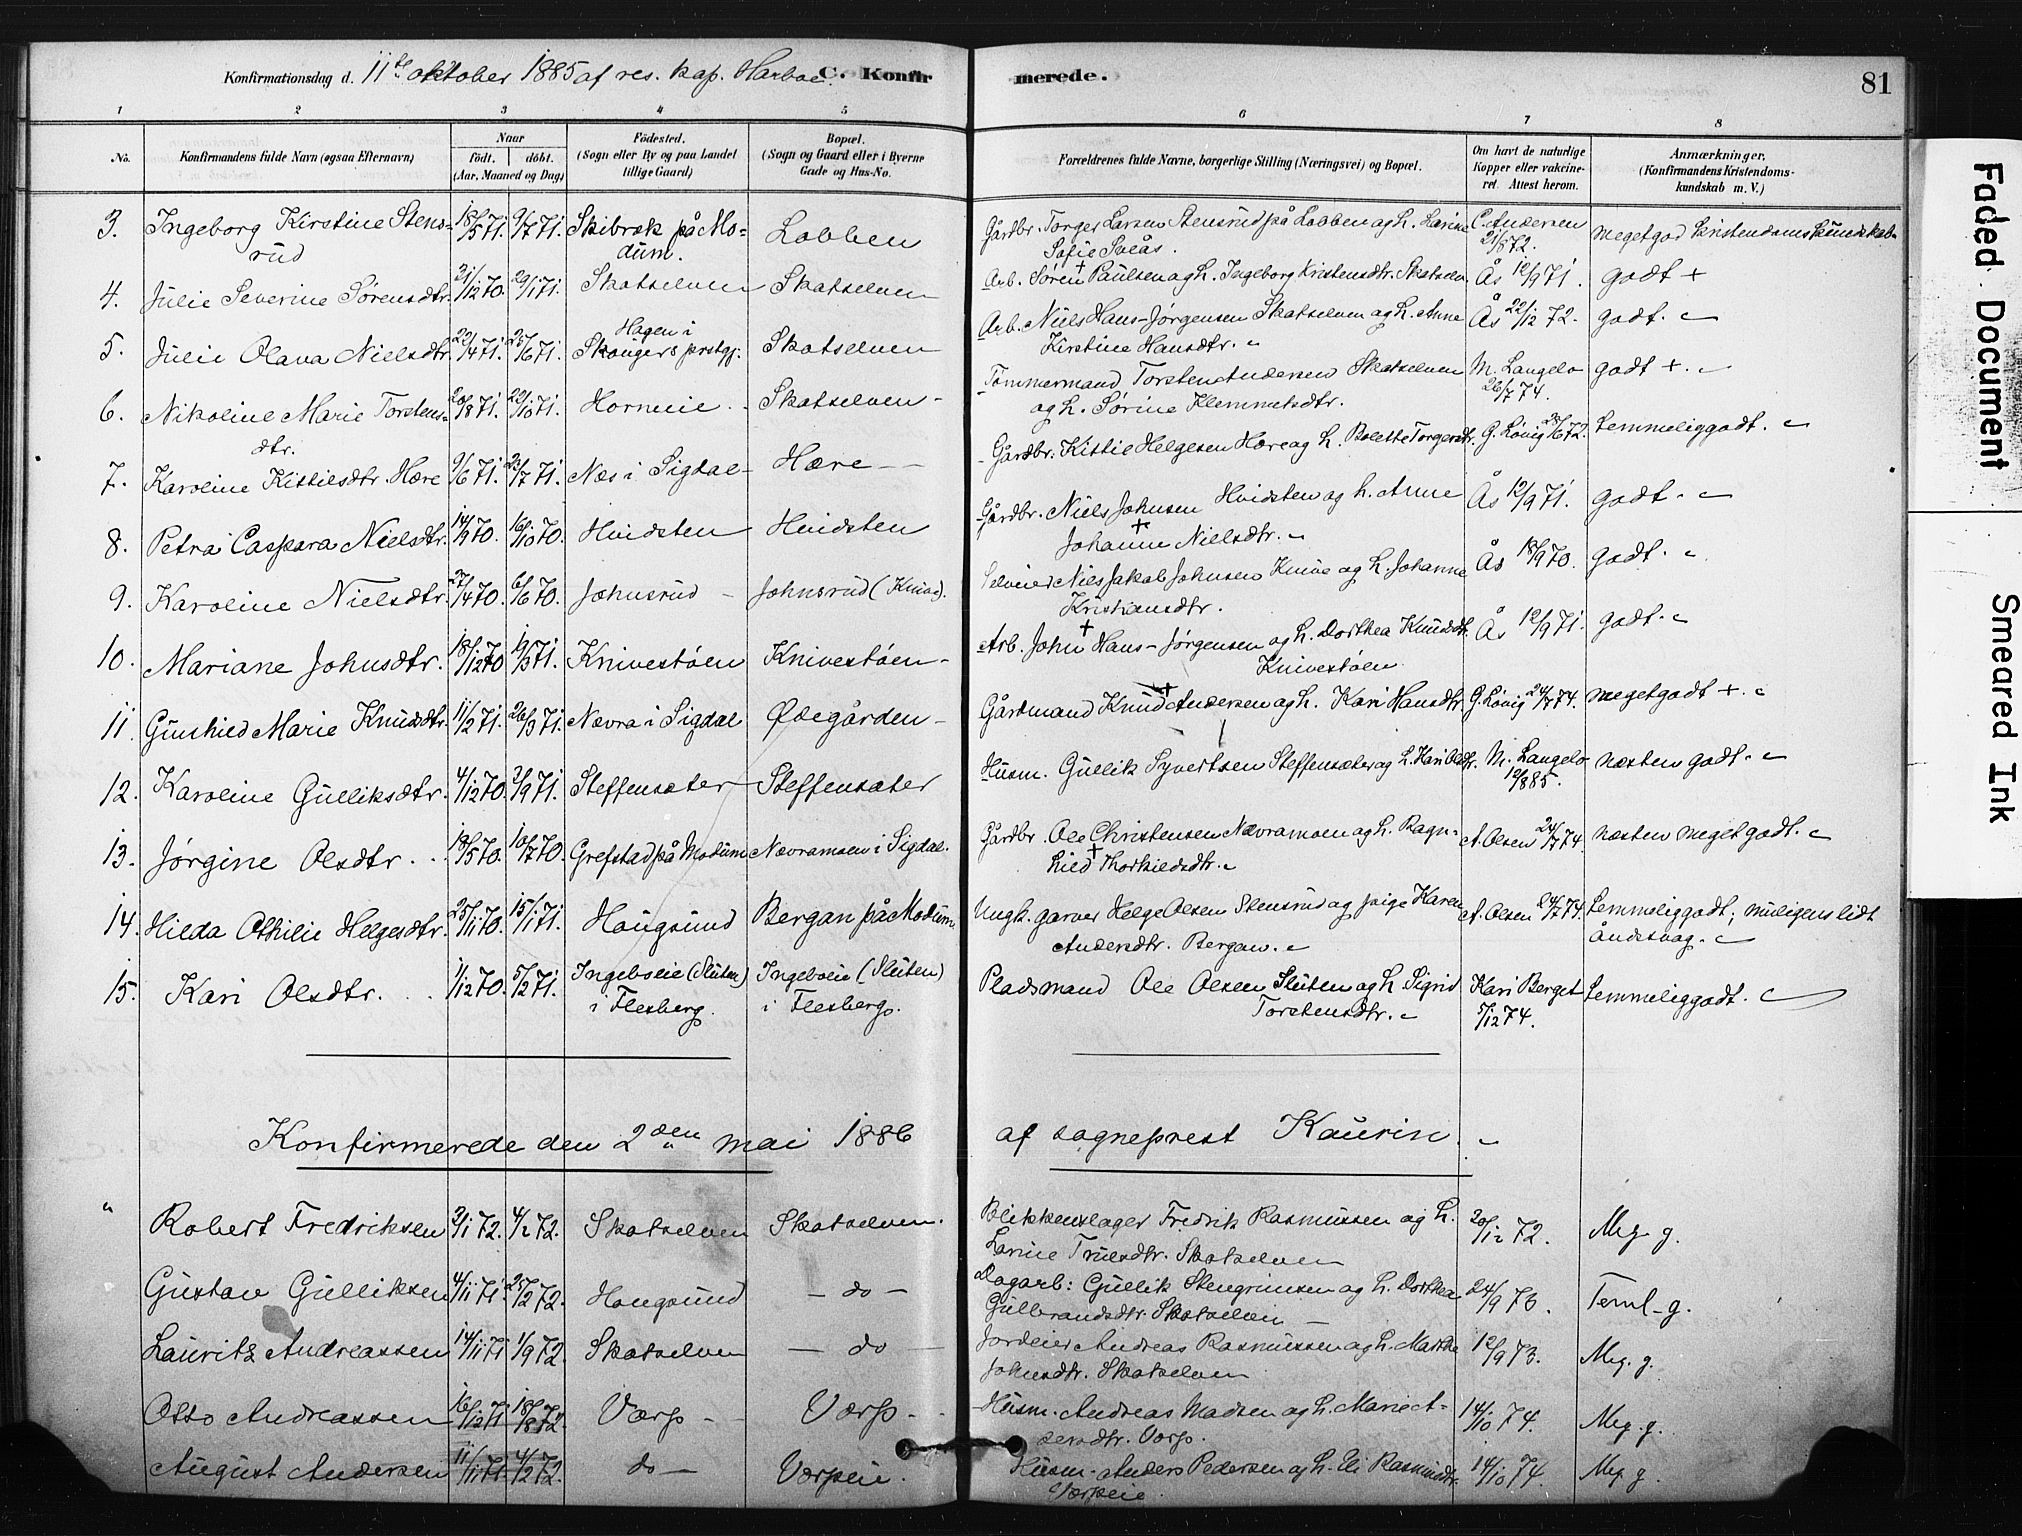 Konfirmationsdag d. 11te oktober 1885 af res. kap. Harboe. C. Konfirmerede. 81
1 2 3 4 5 6 7 8
No. Konfirmandens fulde Navn (ogsaa Efternavn) Naar født. døbt. (Aar, Maaned og Dag) Fødested. (Sogn eller By og paa Landet tillige Gaard) Bopæl. (Sogn og Gaard eller i Byerne Gade og Hus-No. Forældrenes fulde Navne, borgerlige Stilling (Næringsvei) og Bopæl. Om havt de naturlige Kopper eller vakcineret. Attest herom. Anmærkninger. (Konfirmandens Kristendomskundskab m. V.)
3. Ingeborg Kirstine Stensrud 18/5 71. 9/7 71. Skibræk på Modum. Lobben Gårdbr. Torger Larsen Stensrud på Lobben og h. Larine Sofie Svéås. C. Andersen 21/5 72. meget god kristendomskundskab
4. Julie Severine Sørensdtr. 31/12 70. 29/1 71. Skotselven Skotselven Arb. Søren Paulsen og h. Ingeborg Kristensdtr. Skotselv. Ås 12/9 71. godt +
5. Julie Olava Nielsdtr. 22/4 71. 25/6 71. Hagen i Skougers prstgj. Skotselven Arb. Niels Hans-Jørgensen Skotselven og h. Anne Kirstine Hansdtr. Ås 22/12 72. godt.
6. Nikoline Marie Torstensdtr. 20/8 71. 22/10 71. Horneie Skotselven Tømmermand Torsten Andersen Skotselven og h. Sørine Klemmetsdtr. M. Langelo 26/7 74. godt +.
7. Karoline Kittilsdtr. Hære 9/6 71. 23/7 71. Næs i Sigdal Hære Gårdbr. Kittil Helgesen Hære og h. Bolette Torgersdtr. G. Lövig 20/6 72. temmelig godt.
8. Petra Caspara Nielsdtr. 14/9 70. 16/10 70. Hvidsten Hvidsten Gårdbr. Niels Johnsen Hvidsten og h. Anne Johanne Nielsdtr. Ås 12/9 71. godt.
9. Karoline Nielsdtr. 27/4 70. 6/6 70. Johnsrud Johnsrud (Knive). Selveier Niels Jakob Johnsen Knive og h. Johanne Kristiansdtr. Ås 18/9 70. godt.
10. Mariane Johnsdtr. 18/12 70 19/3 71. Knivestøen Knivestøen Arb. John Hans-Jørgensen og h. Dorthea Knudsdtr. Knivestøen Ås 12/9 71. godt.
11. Gunhild Marie Knudsdtr. 11/2 71. 26/3 71. Nævra i Sigdal Ødegården Gårdmand Knud Andersen og h. Kari Hansdtr. G. Lövig 24/7 74. meget godt +.
12. Karoline Gulliksdtr. 4/12 70. 3/9 71. Steffensæter Steffensæter Husm. Gullik Syvertsen Steffensæter og h. Kari Olsdtr. M. Langelo 12/8 85. næsten godt.
13. Jørgine Olsdtr. 18/5 70. 10/7 70. Grefstad på Modum Nævramoen i Sigdal. Gårdbr. Ole Christensen Nævramoen og h. Ragnhild Thorkildsdtr. A. Olsen 24/7 74. næsten meget godt.
14. Hilda Othilie Helgesdtr. 25/11 70. 15/1 71. Hougsund Bergan på Modum. Ungk. garver Helge Olsen Stensrud og pige Karen Andersdtr. Bergan. A. Olsen 24/7 74. temmelig godt; muligens lidt åndsvag.
15. Kari Olsdtr. 1/12 70. 5/2 71. Ingebseie (Sluten) i Flesberg. Ingebseie (Sluten) i Flesberg. Pladsmand Ole Olsen Sluten og h. Sigrid Torstensdtr. Kari Berget 5/12 74. temmelig godt.
Konfirmerede den 2den mai 1886 af sogneprest Kaurin.
" Robert Fredriksen 3/1 72. 4/2 72. Skotselven Skotselven. Blikkenslager Fredrik Rasmussen og h. Larine Truelsdtr. Skotselven 20/12 72. Meg. g.
Gustav Gulliksen 4/11 71. 25/2 72. Hougsund – do – Dagarb: Gullik Stengrimsen og h. Dorthea Gulbrandsdtr. Skotselven 24/9 73. Teml. g.
Lauritz Andreassen 14/11 71 1/9 72. Skotselven – do – Jordeier Andreas Rasmussen og h. Marthe Johnsdtr. Skotselven 12/9 73. Meg. g.
Otto Andreassen 16/12 71 18/8 72. Vorp Vorp. Husm. Andreas Madsen og h. Marie Andersdtr. Vorp. 14/10 74. Meg. g.
August Andersen 11/11 71 4/2 72. do – Vorpeie. Husm. Anders Pedersen og h. Eli Rasmusdtr. Vorpeie 14/10 74. Meg. g.
Faded Document
Smeared Ink